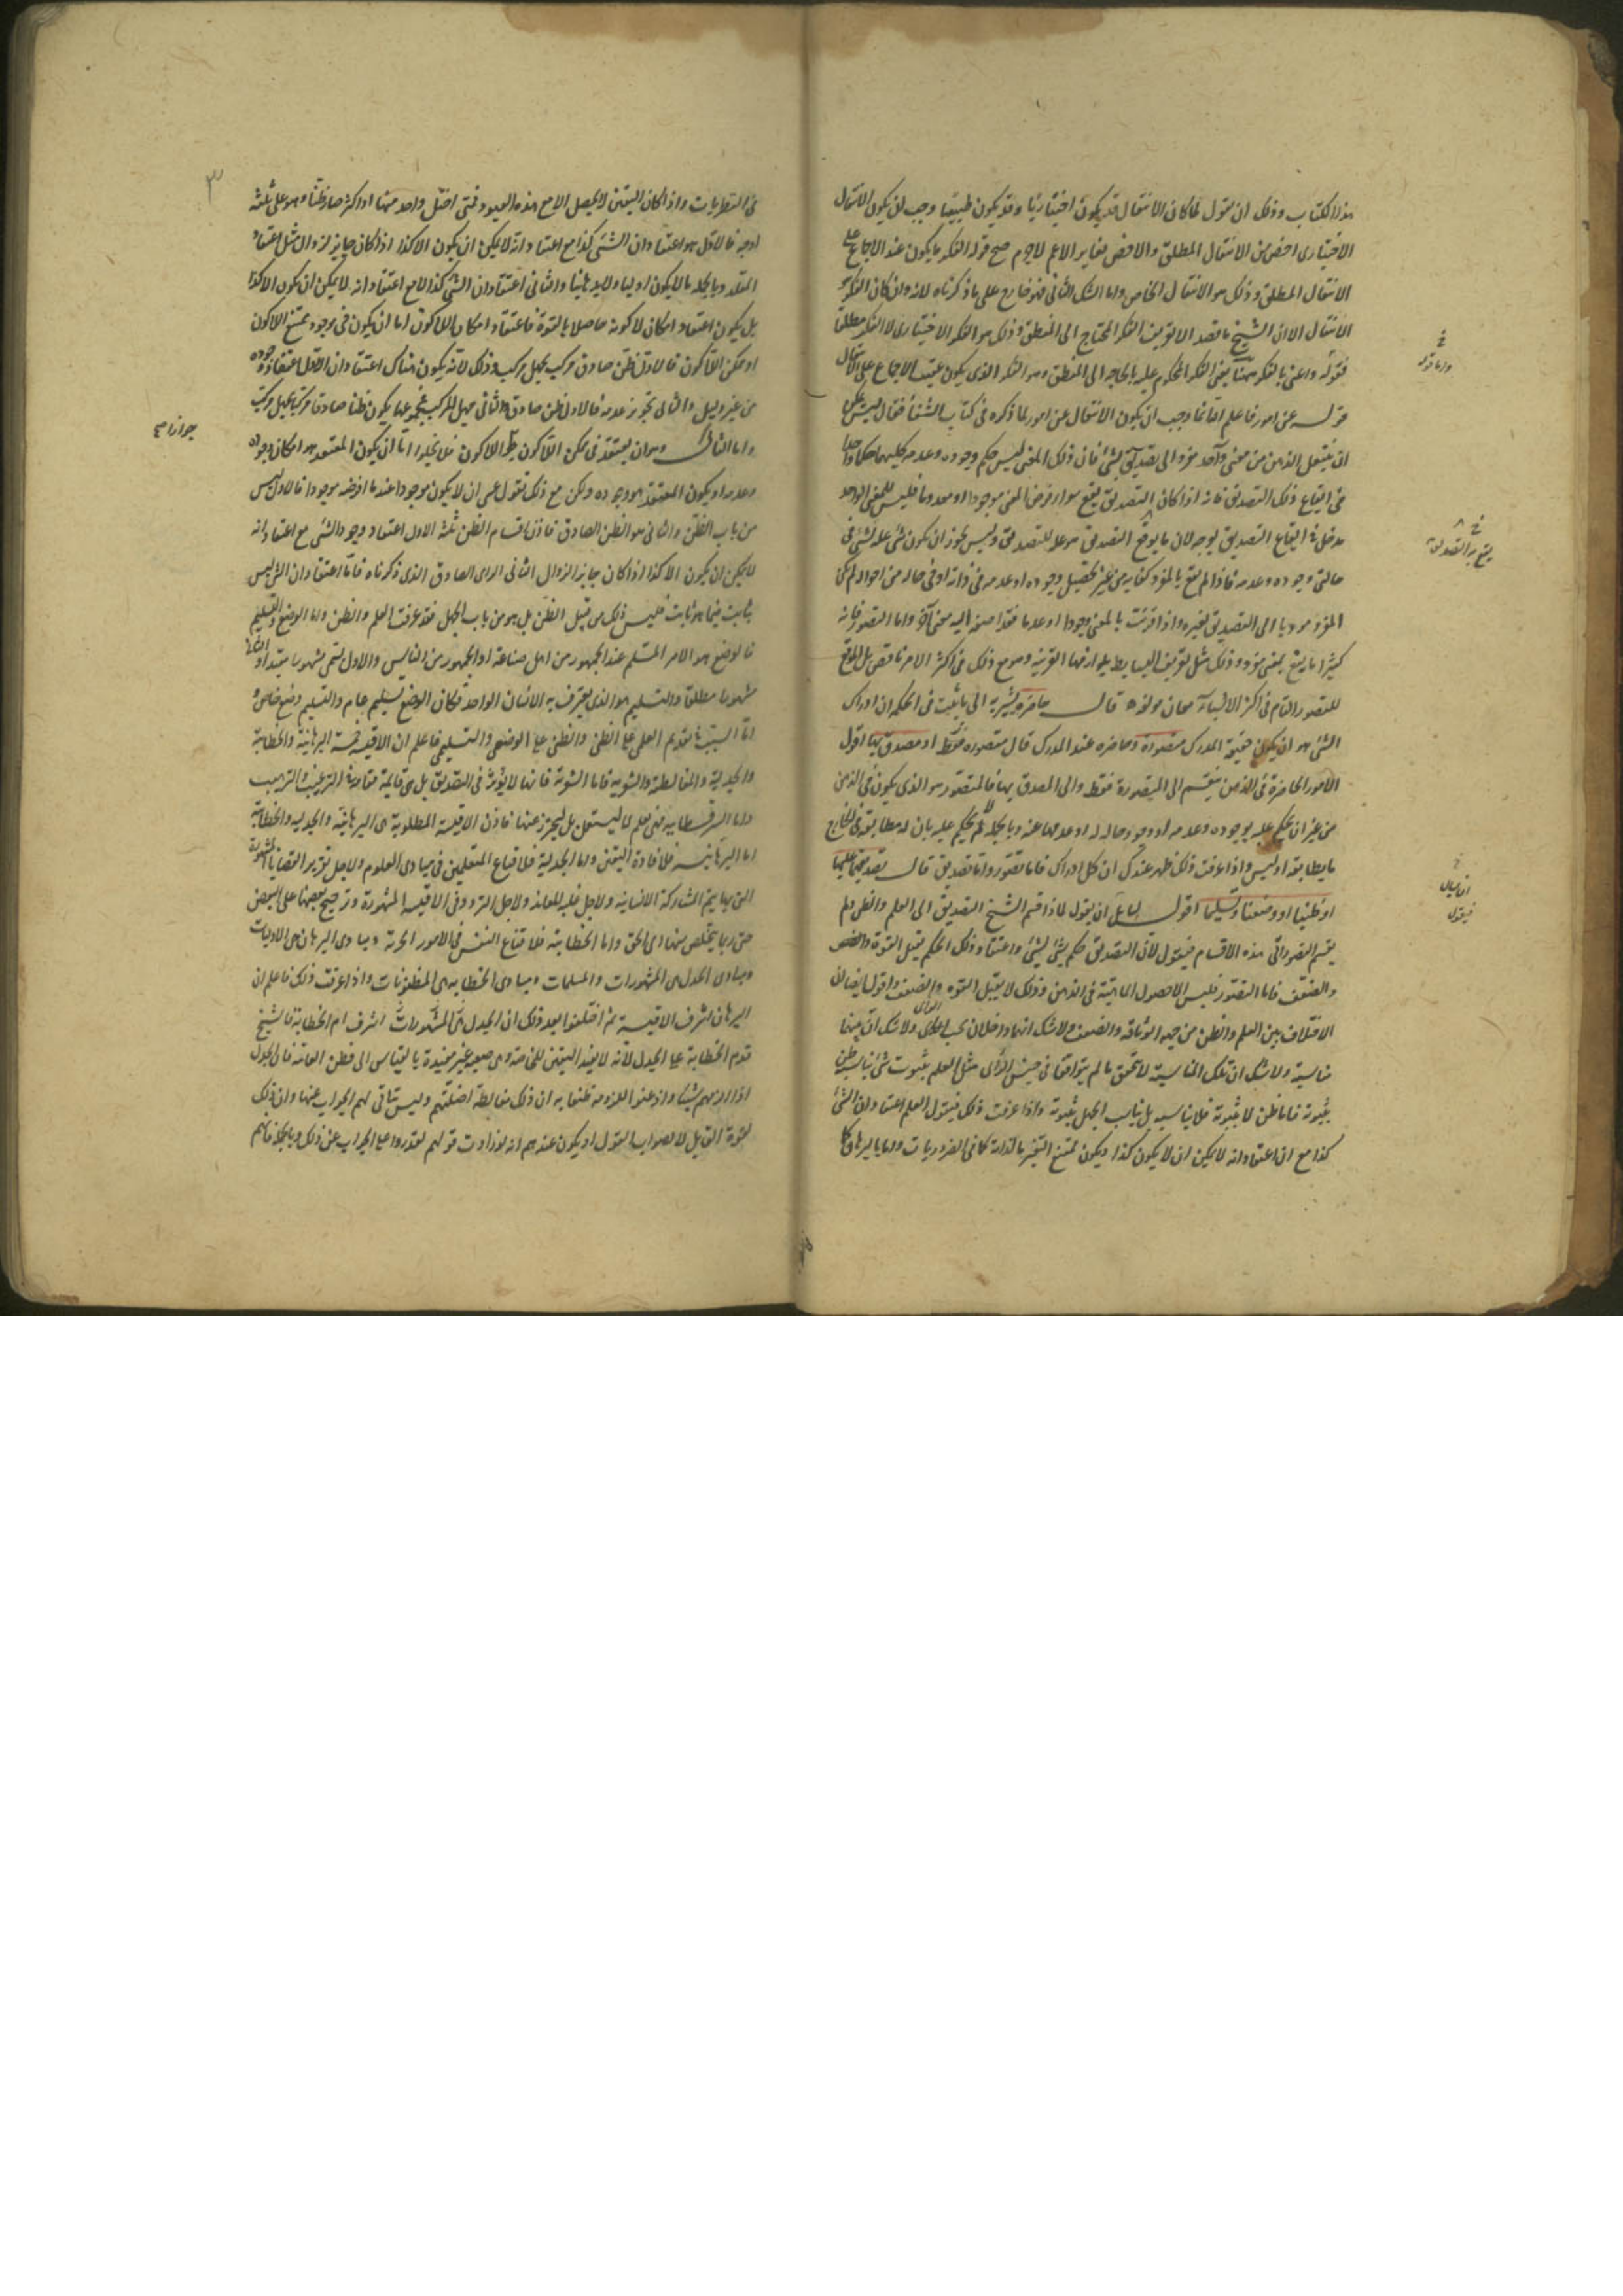 هذا الكتاب وذلك ان نقول لما كان الانتقال قد يكون اختياريا وقد يكون طبيعيا وجب ان يكون الانتقال
الاختيارى اخص من الانتقال المطلق والاخص يغاير الاعم لاجرم صح قوله الفكر ما يكون عند الاجماع على
الانتقال المطلق وذلك هو الانتقال الخاص واما الشك الثانى فهو خارج على ما ذكرناه لانه وان كان الفكر هو
الانتقال الا ان الشيخ ما قصد الا تعريف الفكر المحتاج الى المنطق وذلك هو الفكر الاختيارى لا الفكر مطلقا
فقوله واعنى بالفكر ههنا يعنى الفكر المحكوم عليه بالحاجة الى المنطق وهو الفكر الذى يكون عقيب الاجماع على الانتقال
قوله عن امور فاعلم انما وجب ان يكون الانتقال عن امور لما ذكره فى كتاب الشفا فقال ليس يمكن
ان ينتقل الذهن من معنى واحد مفرد الى تصديق شىء فان ذلك المعنى ليس حكم وجوده وعدمه كليهما حكما واحدا
فى ايقاع ذلك التصديق فانه اذا كان التصديق يقع سواء فرض المعنى موجودا او معدوما فليس للمعنى الواحد
مدخل فى ايقاع التصديق بوجه لان ما يوقع التصديق هو علة للتصديق وليس يجوز ان يكون شىء علة لشىء فى
حالتى وجوده وعدمه فاذا لم تقع بالمفرد كفاية من غير تحصيل وجوده او عدمه فى ذاته او فى حاله من احواله لم يكن
المفرد موديا الى التصديق لغيره واذا قرنت بالمعنى وجودا او عدما فقد اضفت اليه معنى آخر واما التصور فانه
كثيرا ما يقع بمعنى مفرد وذلك مثل تعريف البسايط بلوازمها القريبة وهو مع ذلك فى اكثر الامر ناقص بل الموقع
للتصور التام فى اكثر الاشياء معان مولفه قال حاضرة فى ذهنه الى ما يثبت فى الحكمة ان ادراك
الشىء هو ان يكون حقيقة المدرك متصورة وحاضره عند المدرك قال متصوره فقط او مصدق بها اقول
الامور الحاضرة فى الذهن ينقسم الى المتصورة فقط والى المصدق بها فالمتصور هو الذى يكون فى الذهن
من غير ان يحكم عليه بوجوده وعدمه او وجود حاله له او عدمها عنه وبالجملة لم يحكم عليه بان له مطابقه فى الخارج
ما يطابقه او ليس واذا عرفت ذلك ظهر عندك ان كل ادراك فاما تصور واما تصديق قال تصديقا علميا
او ظنيا او وضعا وتسليما اقول لقائل ان يقول لماذا قسم الشيخ التصديق الى العلم والظن ولم
يقسم التصور الى هذه الاقسام فيقول لان التصديق حكم بشىء لشىء واعتقاد وذلك الحكم يقبل القوة
والضعف فاما التصور فليس الا حصول الماهية فى الذهن وذلك لا يقبل القوه والضعف واقول ايضا ان
الاختلاف بين العلم والظن من جهه الوثاقه والضعف ولا شك انهما داخلان تحت الراى ولا شك ان بينهما
مناسبة ولا شك ان تلك المناسبة لا تتحقق ما لم يتوافقا فى جنس الراى مثل العلم بثبوت شىء يناسبه ظن
ثبوته فاما ظن لا ثبوته فلا يناسبه بل يناسب الجهل بثبوته واذا عرفت ذلك فيقول العلم اعتقاد ان الشىء
كذا مع ان اعتقاد انه لا يمكن ان لا يكون كذا ويكون ممتنع التغير بالذات كما فى الضروريات واما بالبرهان كما
يقع به التصديق
فى النظريات واذا كان اليقين لا يحصل الا مع هذه القيود فمتى اختل واحد منها او اكثر صار ظنا وهو على ثلثة
اوجه فالاول هو اعتقاد ان الشىء كذا مع اعتقاد انه لا يمكن ان يكون الا كذا اذا كان جايز الزوال مثل اعتقاد
المقلد وبالجملة ما لا يكون اوليا ولا برهانيا والثانى اعتقاد ان الشىء كذا لا مع اعتقاد انه لا يمكن ان يكون الا كذا
بل يكون اعتقاد امكان لا كونه حاصلا بالقوة فاعتقاد امكان اللاكون اما ان يكون فى موجود يمتنع اللاكون
او ممكن اللاكون فالاول ظن صادق مركب بجهل مركب وذلك لانه يكون هناك اعتقادان الاول اعتقاد وجوده
من غير دليل والثانى تجويز عدمه فالاول ظن صادق والثانى جهل مركب فمجموعهما يكون ظنا صادقا مركبا بجهل مركب
واما الثانى وهو ان يعتقد فى ممكن اللاكون اللاكون فلا يخلوا اما ان يكون المعتقد هو امكان وجوده
وعدمه او يكون المعتقد هو وجوده ولكن مع ذلك نقول عسى ان لا يكون موجودا عندما افرضه موجودا فالاول ليس
من باب الظن والثانى هو الظن الصادق فاذن اقسام الظن ثلثة الاول اعتقاد وجود الشىء مع اعتقاد انه
لا يمكن ان يكون الا كذا اذا كان جايز الزوال الثانى الراى الصادق الذى ذكرناه فاما اعتقاد ان الشىء ليس
بثابت فيما هو ثابت فليس ذلك من قبيل الظن بل هو من باب الجهل فقد عرفت العلم والظن واما الوضع والتسليم
فالوضع هو الامر المتسلم عند الجمهور من اهل صناعة او الجمهور من الناس والاول يسمى مشهورا مقيدا والثانى
مشهورا مطلقا والتسليم هو الذى يعترف به الانسان الواحد فكان الوضع تسليم عام والتسليم وضع خاص
اما السبب فى تقديم العلمى على الظنى والظنى على الوضعى والتسليمى فاعلم ان الاقيسة خمسة البرهانية والخطابية
والجدلية والمغالطية والشعرية فاما الشعرية فانها لا توثر فى التصديق بل هى قايمة مقامه فى الترغيب والترهيب
واما السوفسطايه فهى تعلم لا ليستعمل بل ليحترز عنها فاذن الاقيسة المطلوبة هى البرهانية والجدليه والخطابية
اما البرهانيه فلافادة اليقين واما الجدلية فلاقناع المتعلمين فى مبادى العلوم ولاجل تقرير القضايا المشهورة
التى بها يتم المشاركة الانسانيه ولاجل غلبه المعاند ولاجل التردد فى الاقيسه المشهورة وترجيح بعضها على البعض
حتى ربما يتخلص منها الى الحق واما الخطابية فلاقناع النفس فى الامور الجزئية ومبادى البرهان هى الاوليات
ومبادى الجدل هى المشهورات والمسلمات ومبادى الخطابه هى المظنونات واذا عرفت ذلك فاعلم ان
البرهان اشرف الاقيسة ثم اختلفوا بعد ذلك ان الجدل اشرف ام الخطابة فالشيخ
قدم الخطابة على الجدل لانه لا يفيد اليقين للخاصة وهى صعبه غير مفيدة بالقياس الى فطن العامه فان الجدل
اذا الزمهم شيئا واذعنوا للزومه ظنوا به ان ذلك مغالطة اضلتهم وليس تتاتى لهم الجواب عنها وان ذلك
لقوة القايل لا لصواب القول او يكون عندهم انه لو زادت قوتهم لقدروا على الجواب عن ذلك وبالجملة فانهم